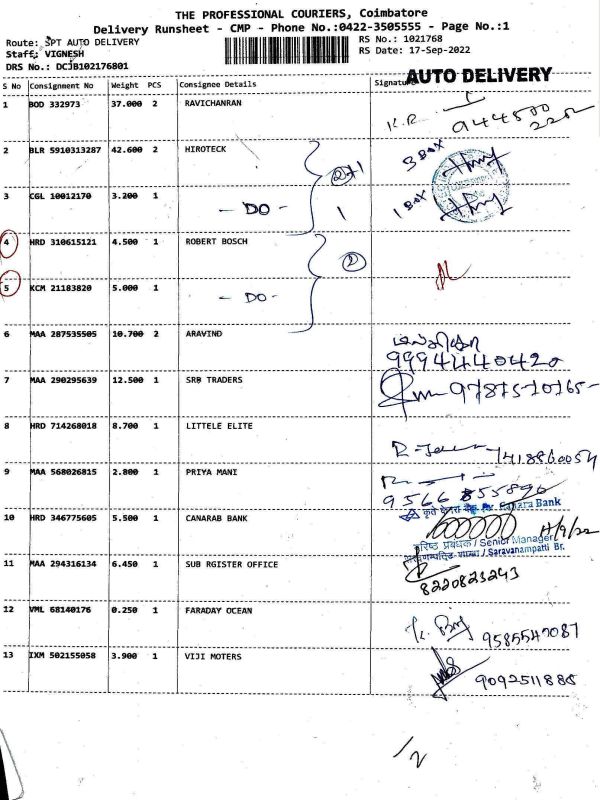 THE PROFESSIONAL COURIERS, Coimbatore
Delivery Runsheet - CMP - Phone No.:0422-3505555 - Page No.:1
Route: SPT AUTO DELIVERY
RS No.: 1021768
Staff: VIGNESH
RS Date: 17-Sep-2022
DRS No.: DCJB102176801
AUTO DELIVERY
S No Consignment No Weight PCS Consignee Details Signature
1 BOD 332973 37.000 2 RAVICHANRAN
K.R
2 BLR 5910313287 42.600 2 HIROTECK 2+1 3 BOX
3 CGL 10012170 3.200 1 - DO - 1 1 BOX
4 HRD 310615121 4.500 1 ROBERT BOSCH 2
5 KCM 21183820 5.000 1 - DO -
6 MAA 287535505 10.700 2 ARAVIND
9994440420
7 MAA 290295639 12.500 1 SRB TRADERS
8 HRD 714268018 8.700 1 LITTELE ELITE
9 MAA 568026815 2.800 1 PRIYA MANI
9566 855890
Canara Bank
10 HRD 346775605 5.500 1 CANARAB BANK
17/9/22
वरिष्ठ प्रबंधक / Senior Manager
शाखा / Saravanampatti Br.
11 MAA 294316134 6.450 1 SUB RGISTER OFFICE
8220823243
12 VML 68140176 0.250 1 FARADAY OCEAN
9585547087
13 IXM 502155058 3.900 1 VIJI MOTERS
9092511888